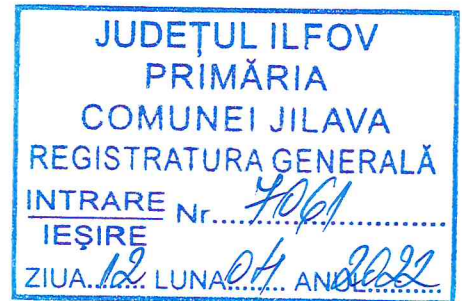 JUDEȚUL ILFOV
PRIMĂRIA
COMUNEI JILAVA
REGISTRATURA GENERALĂ
INTRARE Nr....7061..............
IEȘIRE
ZIUA..12.. LUNA..04.. ANUL..2022.....